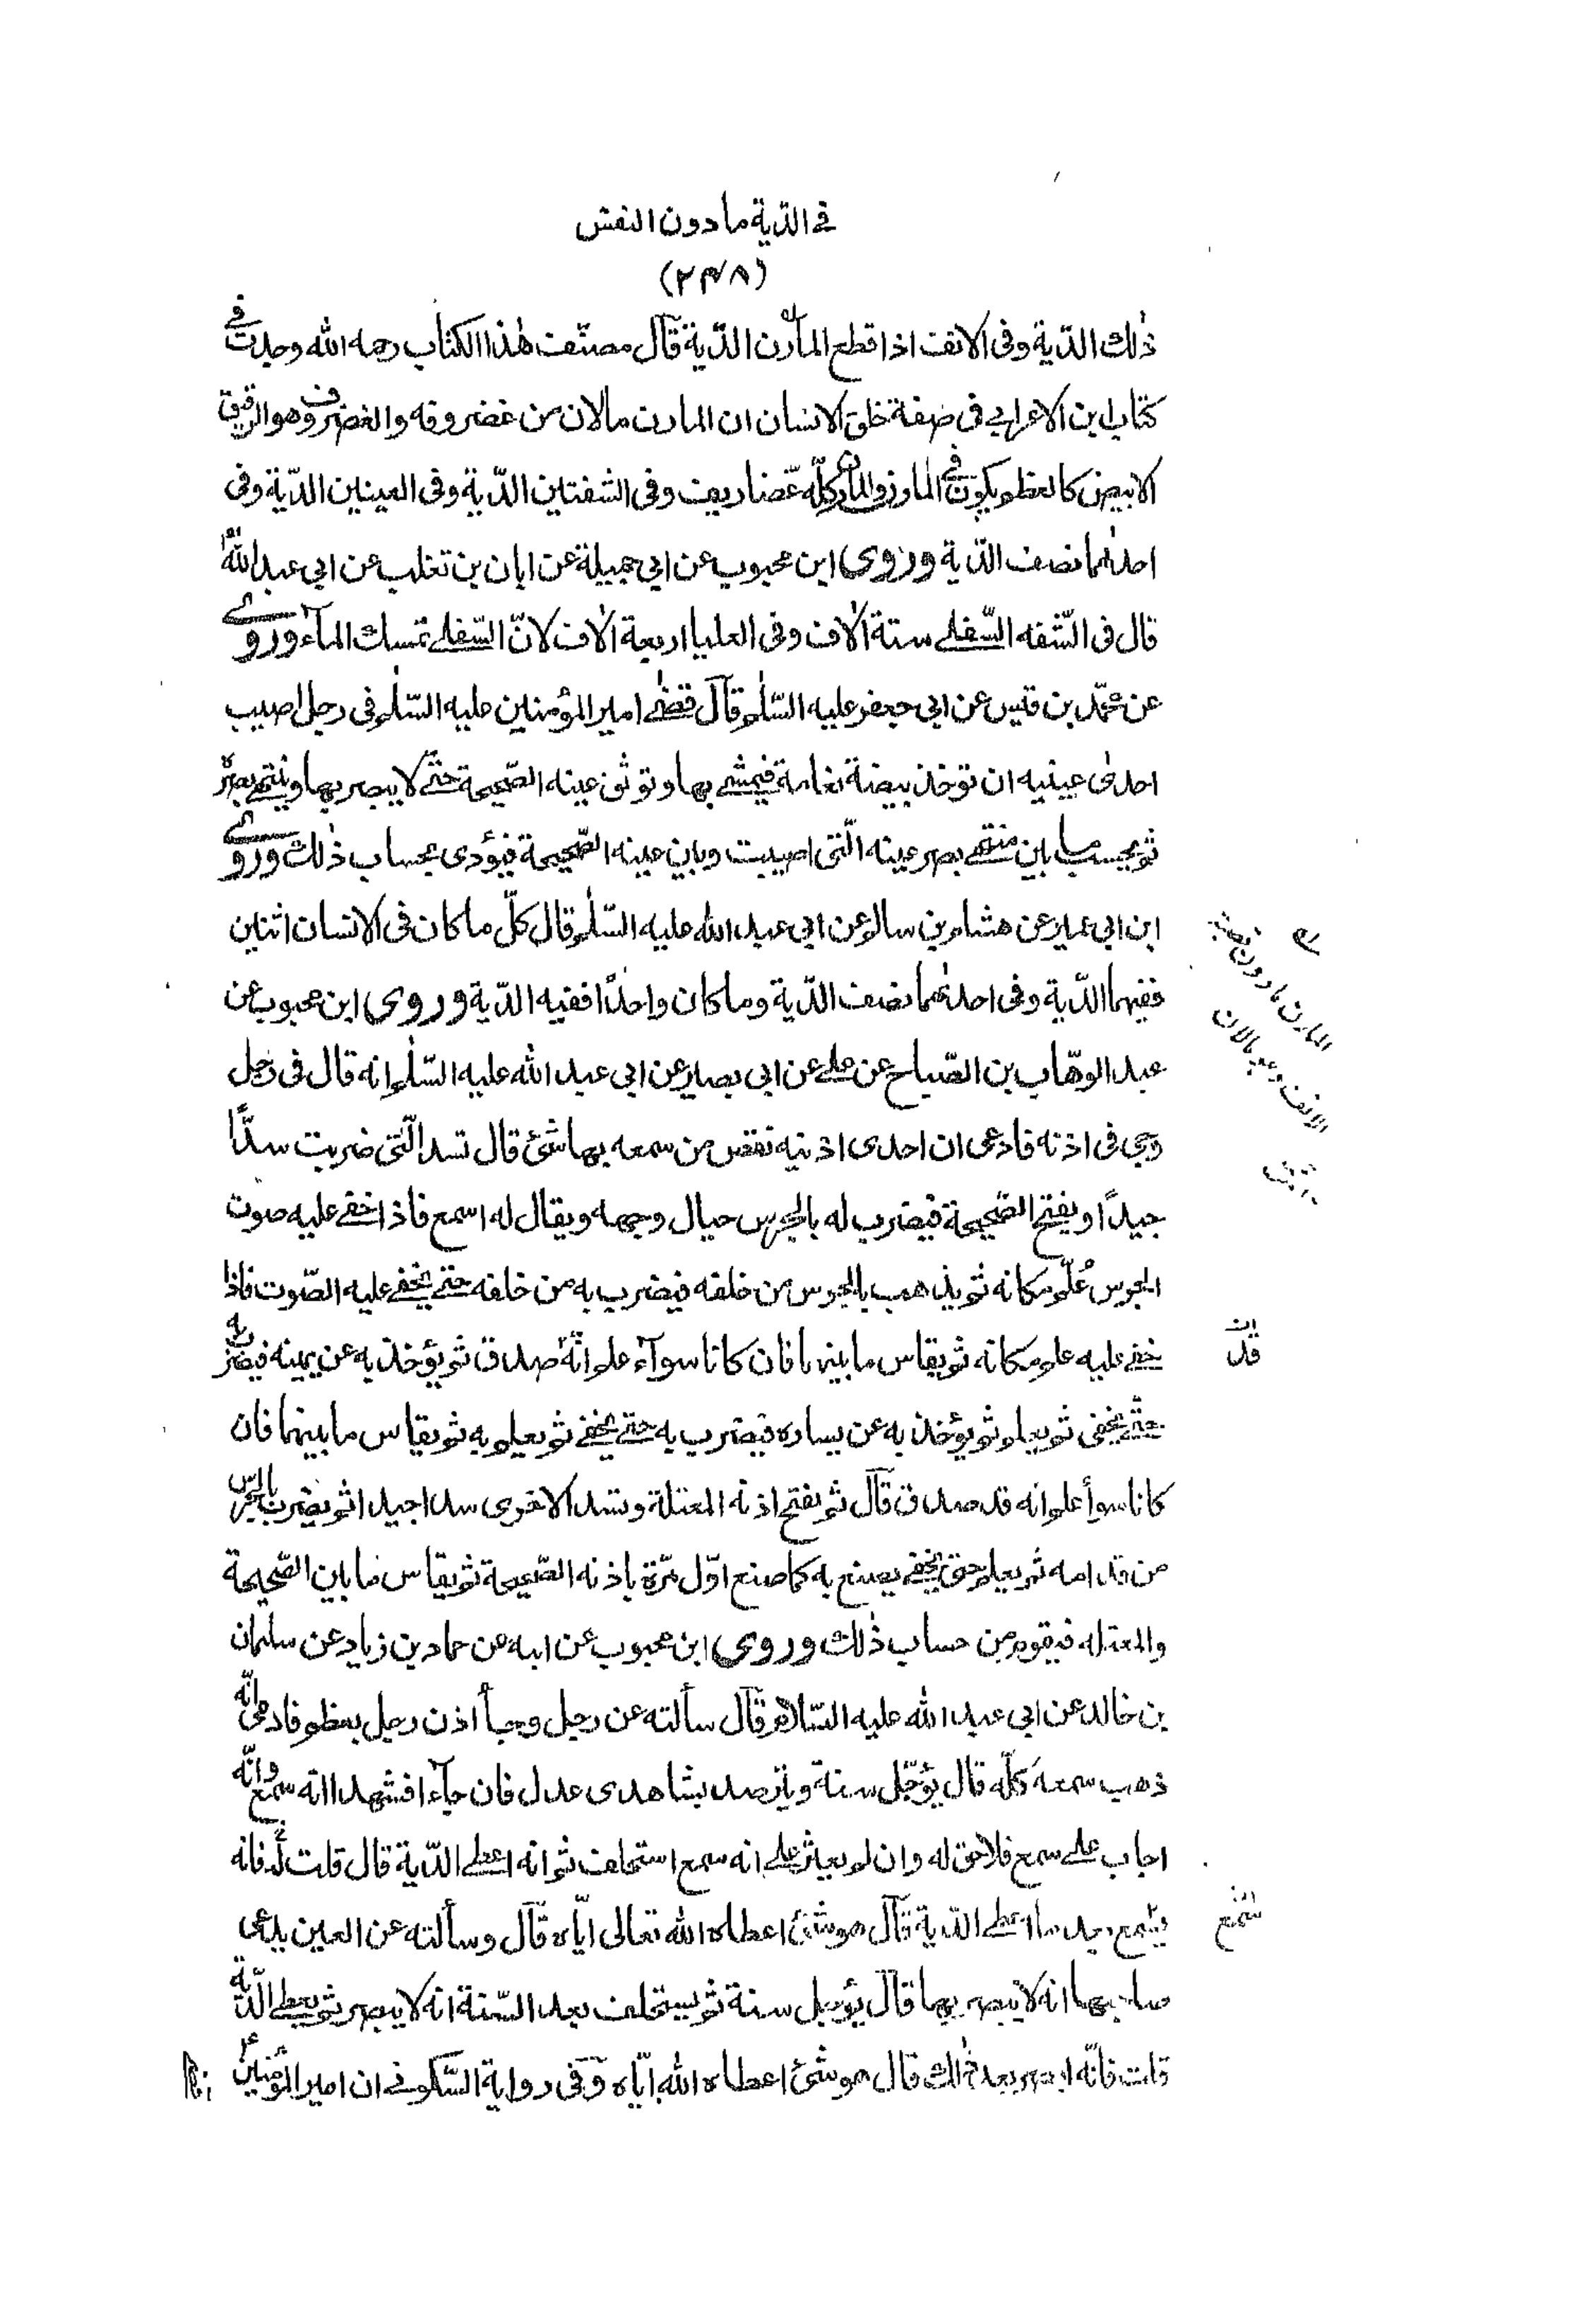 في الدّية مادون النفس
(٢٣٨)
ذٰلك الدّية وفى الانف اذا قطع المارن الدّية قال مصنّف هٰذا الكتاب رحمه الله وجدت في
كتاب ابن الاعرابي فى صفة خلق الانسان ان المارن مالان من غضروفه والغضروف وهو الرقيق
الابيض كالعظم يكون في المارن والمارن كلّه غضاريف وفى الشفتين الدّية وفى العينين الدّية وفى
احدٰهما نصف الدّية وروى ابن محبوب عن ابي جميلة عن ابان بن تغلب عن ابي عبدالله
قال فى الشّفه السّفلے ستة اٰلاف وفى العليا اربعة اٰلاف لانّ السّفلے تمسك المآء وروے
عن محمّد بن قيس عن ابي جعفر عليه السّلٰم قال قضٰے امير المؤمنين عليه السّلٰم فى رجل اصيب
احدى عينيه ان تؤخذ بيضة نعامة فيمشے بها وتوثق عينه الصّحيحة حتّے لا يبصر بها وينتهے بصره
ثم يحسب ما بين منتهے بصر عينه الّتى اصيبت وبين عينه الصّحيحة فيؤدى بحساب ذٰلك وروے
ابن ابي عمير عن هشام بن سالم عن ابي عبد الله عليه السّلٰم قال كلّ ما كان فى الانسان اثنين
ففيهما الدّية وفى احدٰهما نصف الدّية وما كان واحدًا ففيه الدّية وروى ابن محبوب عن
عبد الوهّاب بن الصّباح عن علے عن ابى بصير عن ابي عبد الله عليه السّلٰم انه قال فى رجل
وجى فى اذنه فادعى ان احدى اذنيه نقص من سمعه بها شئ قال تسد الّتى ضربت سدًّا
جيدًا ويفتح الصّحيحة فيضرب له بالجرس حيال وجهه ويقال له اسمع فاذا خفے عليه صوت
الجرس عُلّم مكانه ثم يذهب بالجرس من خلفه فيضرب به من خلفه حتے يخفے عليه الصّوت فاذا
خفے عليه علم مكانه ثم يقاس ما بينهما فان كانا سوآء علم انّه صدق ثم يؤخذ به عن يمينه فيضرب به
حتّے يخفى ثم يعلم ثم يؤخذ به عن يساره فيضرب به حتے يخفے ثم يعلم به ثم يقاس ما بينهما فان
كانا سوأ علم انه قد صدق قال ثم يفتح اذنه المعتلة وتسد الاخرى سدا جيدا ثم يضرب بالجرس
من قدامه ثم يعلم حتى يخفے يصنع به كما صنع اوّل مرّة باذنه الصّحيحة ثم يقاس ما بين الصّحيحة
والمعتله فيقوم من حساب ذٰلك وروى ابن محبوب عن ابيه عن حماد بن زياد عن سليمان
بن خالد عن ابي عبد الله عليه السّلام قال سألته عن رجل وجأ اذن رجل بعظم فادعى انّه
ذهب سمعه كلّه قال يؤجّل سنة ويترصد بشاهدى عدل فان جآءا فشهدا انه سمع وانّه
اجاب علے سمع فلا حق له وان لم يعثر علے انه سمع استحلف ثم انه اعطے الدّية قال قلت له فانه
يسمع بعد ما اعطے الدّية قال هو شئ اعطاه الله تعالى ايّاه قال وسألته عن العين يدعى
صاحبها انه لا يبصر بها قال يؤجل سنة ثم يستحلف بعد السّنة انه لا يبصر ثم يعطے الدّية
قلت فانّه ابصر بعد ذٰلك قال هو شئ اعطاه الله ايّاه وفى رواية السّكونے ان امير المؤمنين
المارن مادون
الانف وهو مالان
ان
قد